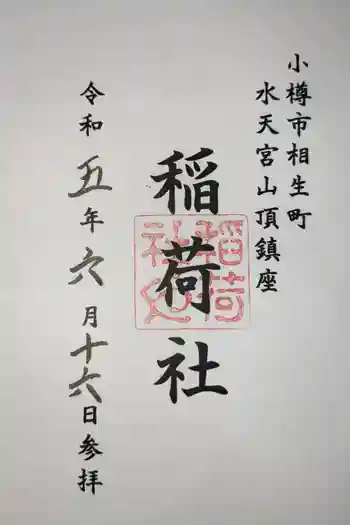 小樽市相生町
水天宮山頂鎮座
稲荷社
令和五年六月十六日参拝